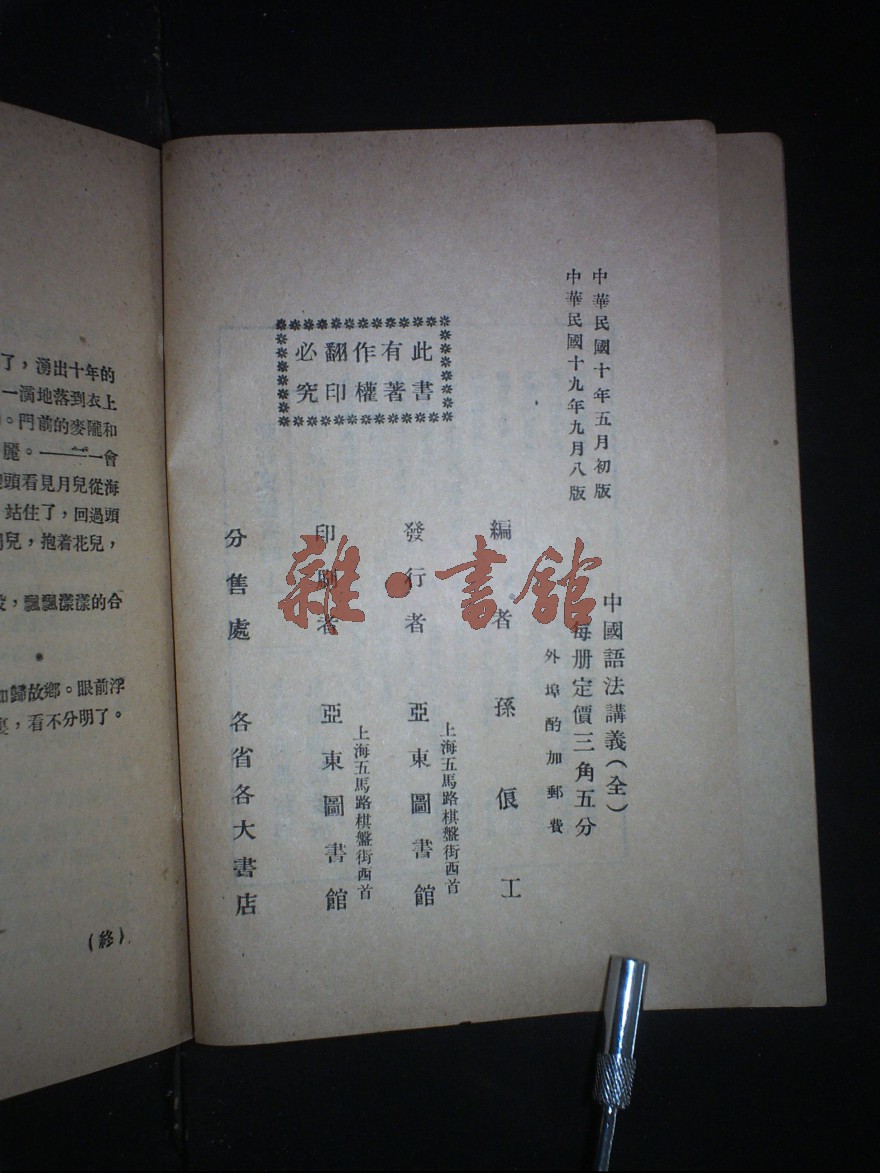 中華民國十年五月初版
中華民國十九年九月八版
此書
有著
作權
翻印
必究
中國語法講義(全)
每册定價三角五分
外埠酌加郵費
編者 孫俍工
上海五馬路棋盤街西首
發行者 亞東圖書館
上海五馬路棋盤街西首
印刷者 亞東圖書館
分售處 各省各大書店
雜·書館
了，湧出十年的
一滴地落到衣上
。門前的麥隴和
麗。——一會
頭看見月兒從海
站住了，回過頭
兒，抱着花兒，
，飄飄漾漾的合
如歸故鄉。眼前浮
裏，看不分明了。
(終)